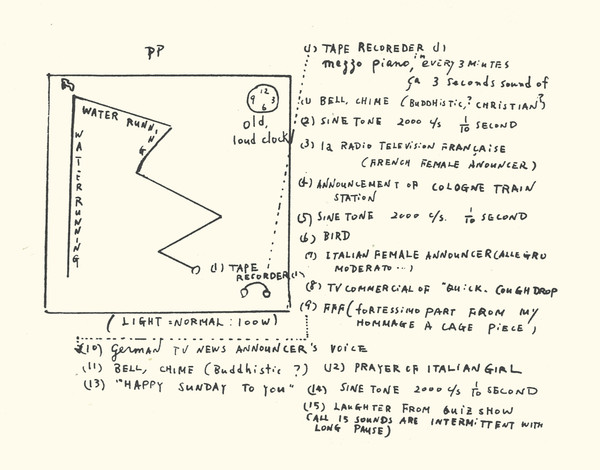 PP
12
9 3
6
old,
loud clock
WATER RUNNING
WATER RUNNING
(1) TAPE
RECORDER (1)
(LIGHT = NORMAL : 100W)
(1) TAPE RECOREDER (1)
mezzo piano, "EVERY 3 MINUTES
a 3 seconds sound of
(1) BELL, CHIME (BUDDHISTIC,? CHRISTIAN?)
(2) SINE TONE 2000 c/s 1/10 SECOND
(3) la RADIO TELEVISION FRANÇAISE
(FRENCH FEMALE ANOUNCER)
(4) ANNOUNCEMENT OF COLOGNE TRAIN
STATION
(5) SINE TONE 2000 c/s. 1/10 SECOND
(6) BIRD
(7) ITALIAN FEMALE ANNOUNCER (ALLEGRO
MODERATO ...)
(8) TV COMMERCIAL OF "QUICK. COUGH DROP
(9) FFF (fortessimo PART FROM MY
HOMMAGE A CAGE PIECE,
(10) German TV NEWS ANNOUNCER'S VOICE
(11) BELL, CHIME (Buddhistic ?) (12) PRAYER OF ITALIAN GIRL
(13) "HAPPY SUNDAY TO YOU" (14) SINE TONE 2000 c/s 1/10 SECOND
(15) LAUGHTER FROM QUIZ SHOW
(ALL 15 SOUNDS ARE INTERMITTENT WITH
LONG PAUSE)